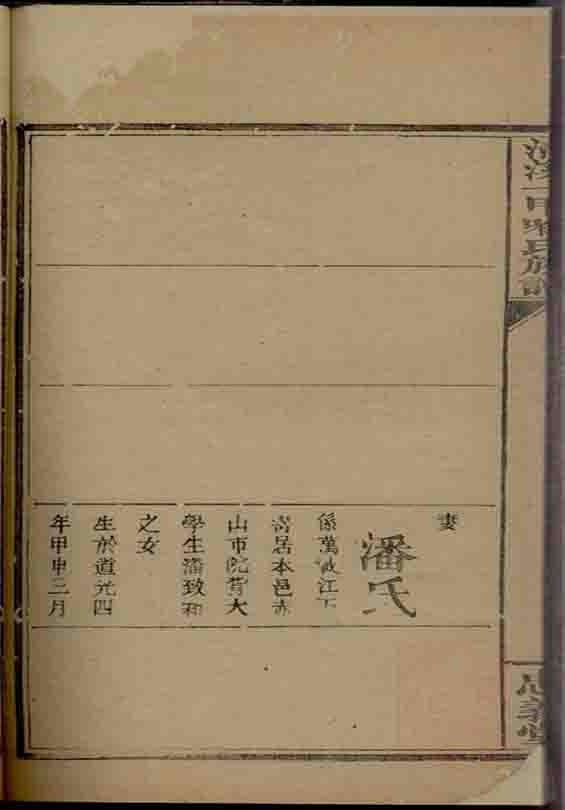 氏族譜
忠義堂
妻
潘氏
係萬載江下
寄居本邑赤
山市院背大
學生潘致和
之女
生於道光四
年甲申三月